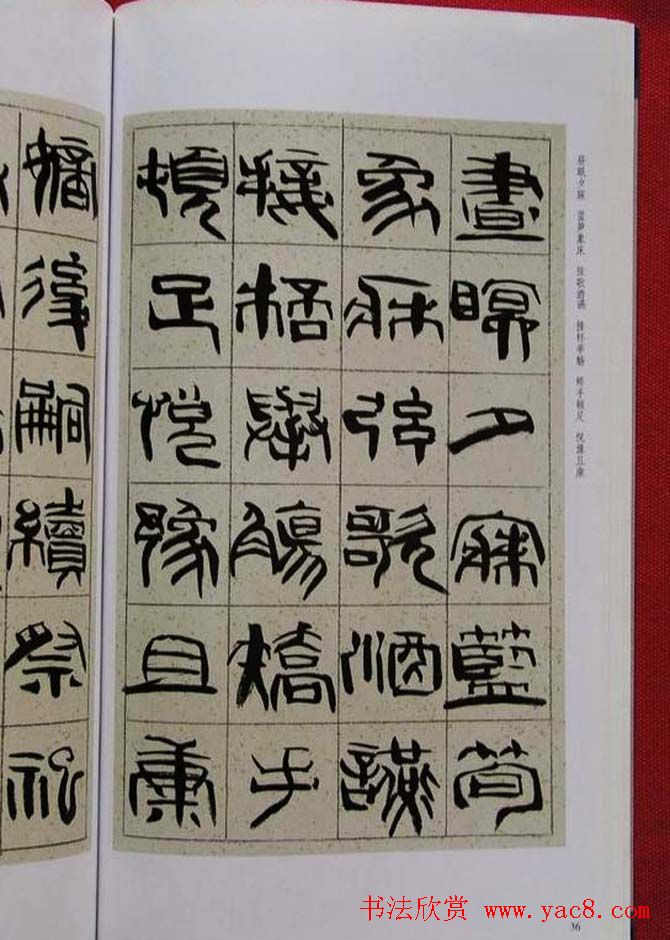 昼眠夕寐 蓝笋象床 弦歌酒讌 接杯举觞 矫手顿足 悦豫且康
晝眠夕寐藍筍
象牀弦歌酒讌
接桮舉觴矯手
頓足悅豫且康
嫡後嗣續祭祀
书法欣赏 www.yac8.com
36